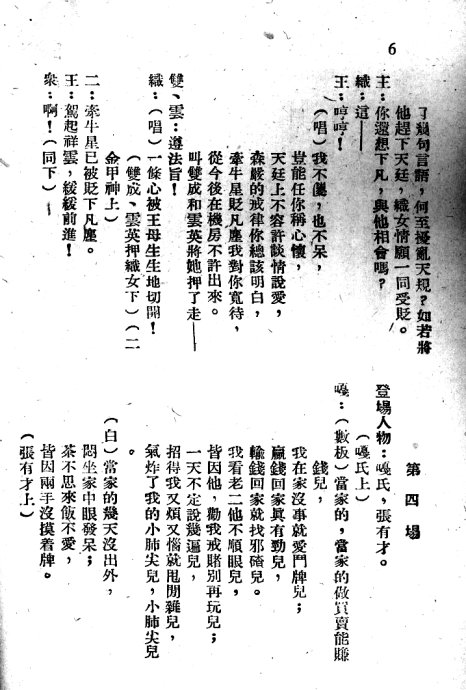 6
了幾句言語，何至擾亂天規？如若將
他趕下天廷，織女情願一同受貶。
王：你還想下凡，與他相會嗎？
織：這——
王：哼哼！
（唱）我不傻，也不呆，
豈能任你稱心懷，
天廷上不容許談情說愛，
森嚴的戒律你總該明白，
牽牛星貶凡塵我對你寬待，
從今後在機房不許出來。
叫雙成和雲英將她押了走——
雙、雲：遵法旨！
織：（唱）一條心被王母生生地切開！
（雙成、雲英押織女下）（二
金甲神上）
二：牽牛星已被貶下凡塵。
王：駕起祥雲，緩緩前進！
衆：啊！（同下）
第四場
登場人物：嘎氏，張有才。
（嘎氏上）
嘎：（數板）當家的，當家的做買賣能賺
錢兒，
我在家沒事就愛鬥牌兒；
贏錢回家真有勁兒，
輸錢回家就找邪碴兒。
我看老二他不順眼兒，
皆因他，勸我戒賭別再玩兒；
一天不定說幾遍兒，
招得我又煩又惱就甩閒雜兒，
氣炸了我的小肺尖兒，小肺尖兒
（白）當家的幾天沒出外，
悶坐家中眼發呆；
茶不思來飯不愛，
皆因兩手沒摸着牌。
（張有才上）